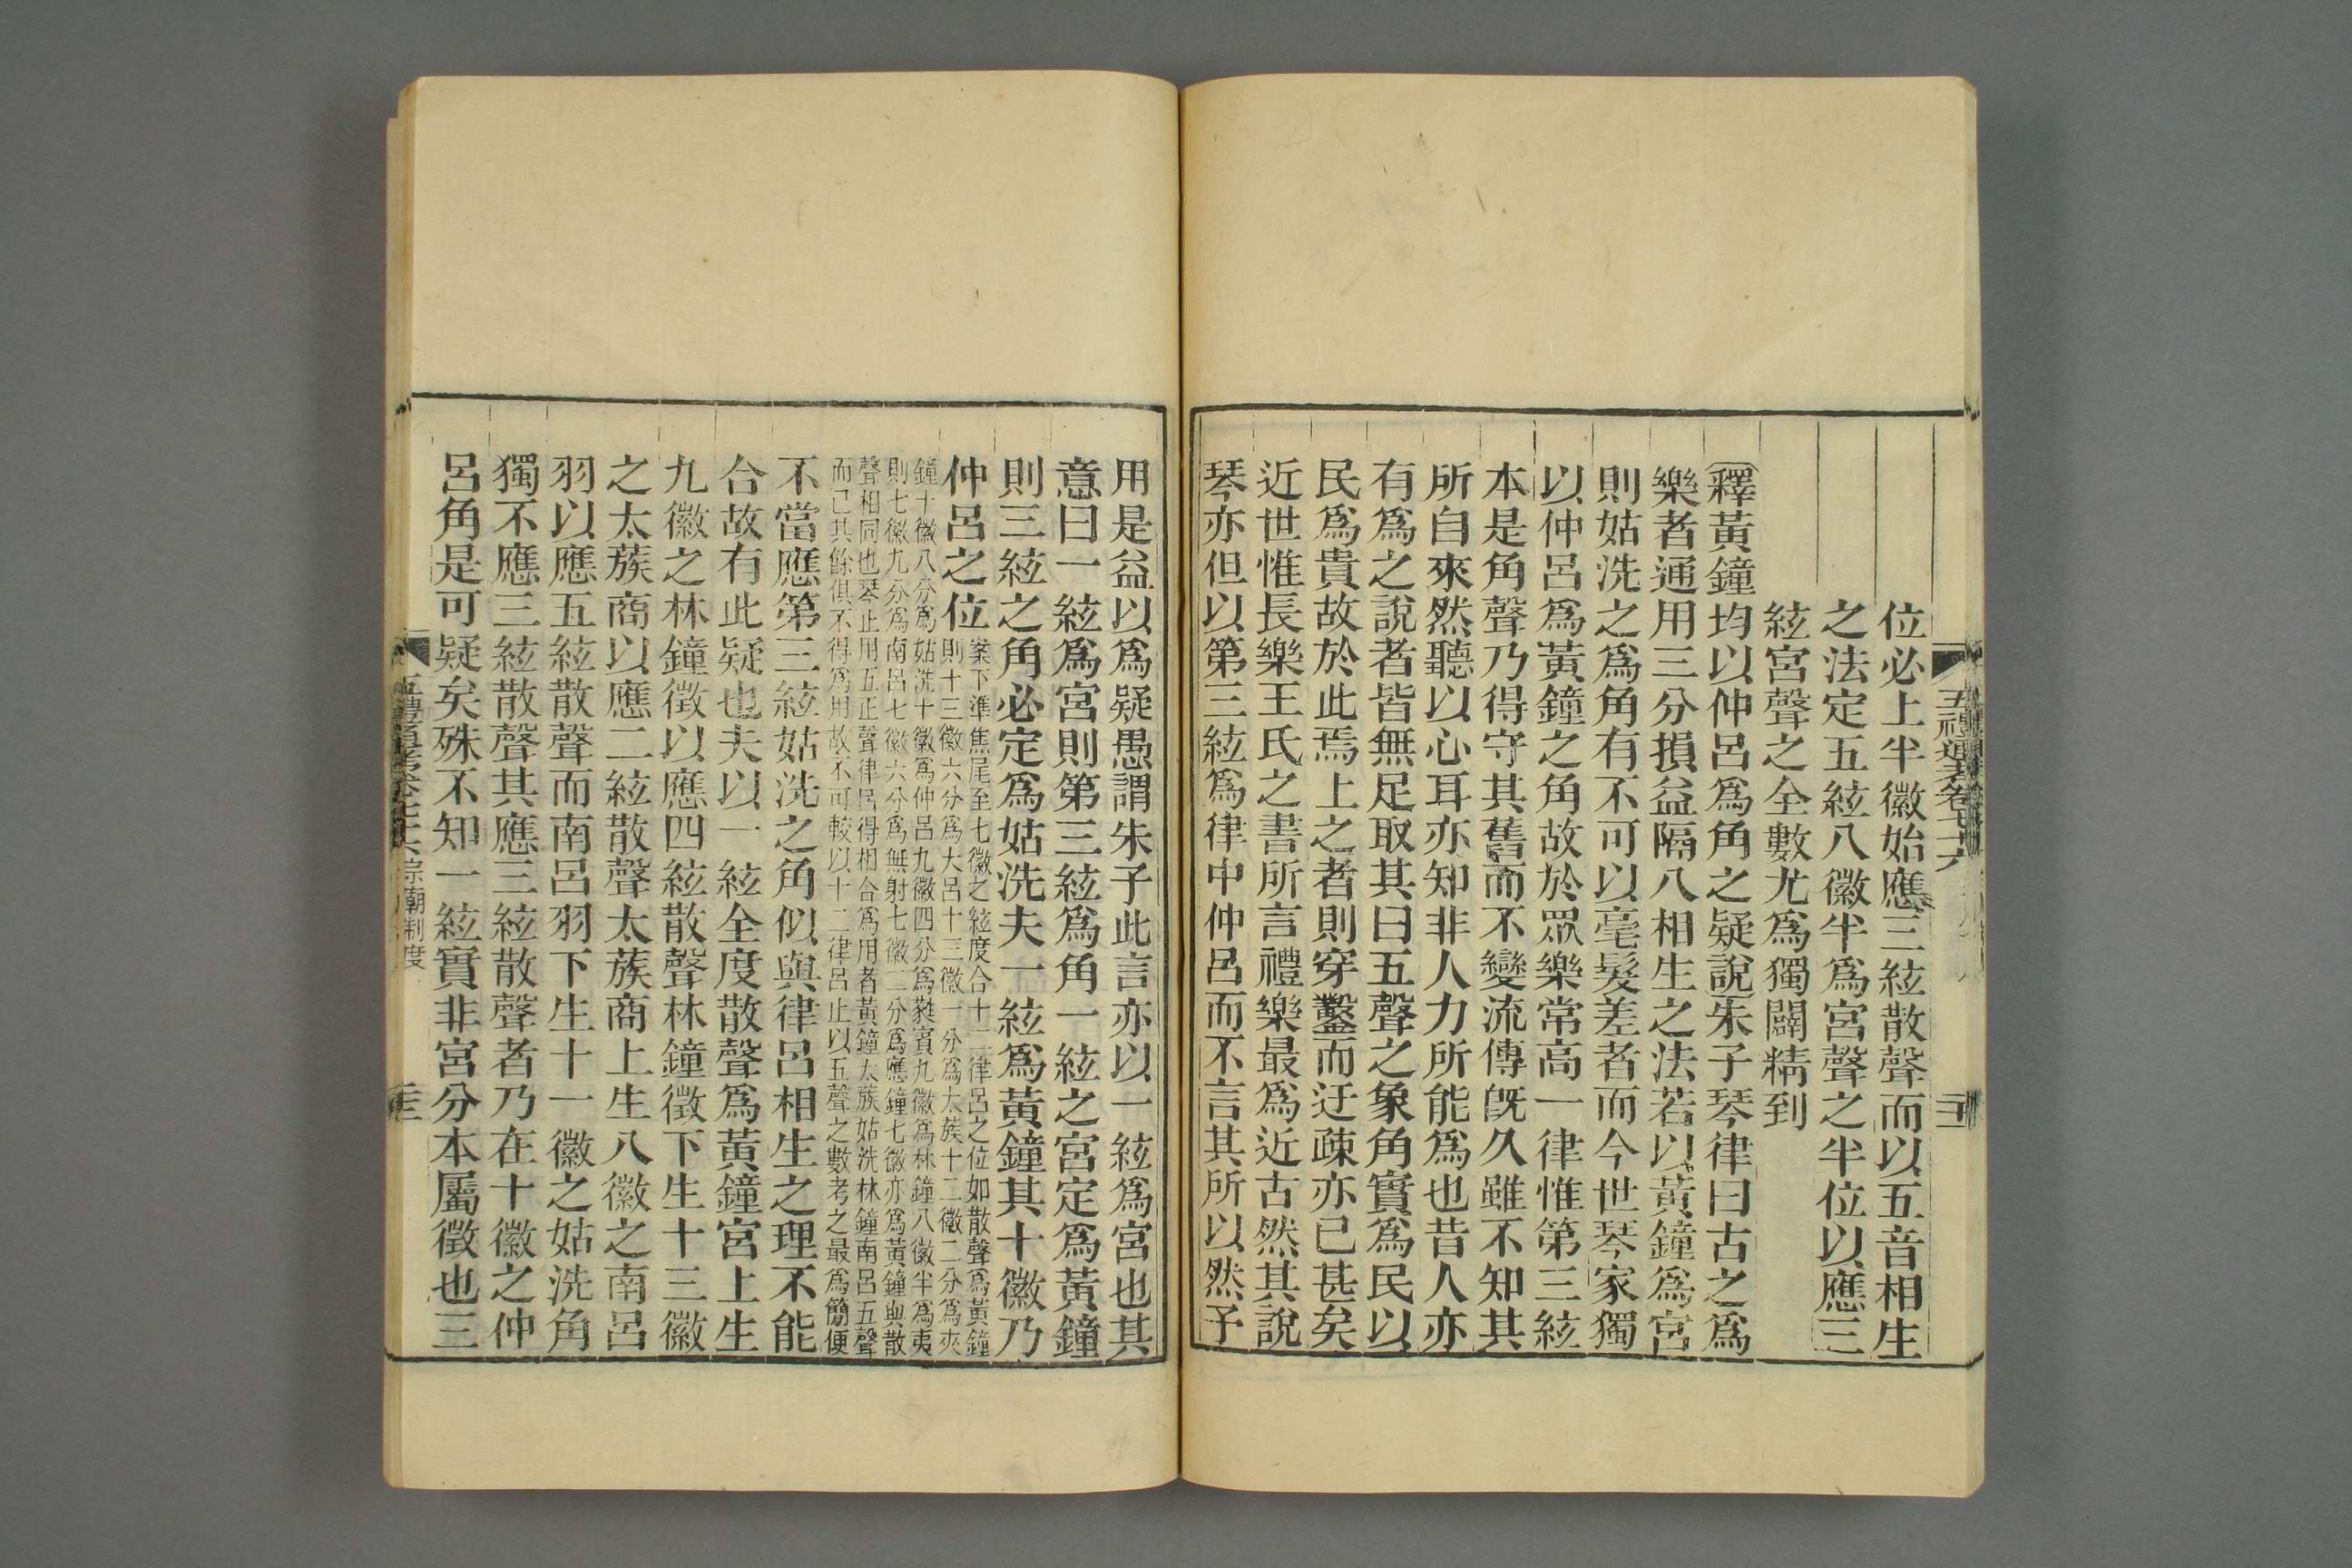 位必上半徽始應三絃散聲而以五音相生
之法定五絃八徽半爲宮聲之半位以應三
絃宮聲之全數尤爲獨闢精到
釋黃鐘均以仲呂爲角之疑說朱子琴律曰古之爲
樂者通用三分損益隔八相生之法若以黃鐘爲宮
則姑洗之爲角有不可以毫髮差者而今世琴家獨
以仲呂爲黃鐘之角故於眾樂常高一律惟第三絃
本是角聲乃得守其舊而不變流傳旣久雖不知其
所自來然聽以心耳亦知非人力所能爲也昔人亦
有爲之說者皆無足取其曰五聲之象角實爲民以
民爲貴故於此焉上之者則穿鑿而迂疎亦已甚矣
近世惟長樂王氏之書所言禮樂最爲近古然其說
琴亦但以第三絃爲律中仲呂而不言其所以然予
用是益以爲疑愚謂朱子此言亦以一絃爲宮也其
意曰一絃爲宮則第三絃爲角一絃之宮定爲黃鐘
則三絃之角必定爲姑洗夫一絃爲黃鐘其十徽乃
仲呂之位案下準焦尾至七徽之絃度合十二律呂之位如散聲爲黃鐘
則十三徽六分爲大呂十三徽一分爲太蔟十二徽二分爲夾
鐘十徽八分爲姑洗十徽爲仲呂九徽四分爲蕤賓九徽爲林鐘八徽半爲夷
則七徽九分爲南呂七徽六分爲無射七徽二分爲應鐘七徽亦爲黃鐘與散
聲相同也琴止用五正聲律呂得相合爲用者黃鐘太蔟姑洗林鐘南呂五聲
而已其餘俱不得爲用故不可較以十二律呂止以五聲之數考之最爲簡便
不當應第三絃姑洗之角似與律呂相生之理不能
合故有此疑也夫以一絃全度散聲爲黃鐘宮上生
九徽之林鐘徵以應四絃散聲林鐘徵下生十三徽
之太蔟商以應二絃散聲太蔟商上生八徽之南呂
羽以應五絃散聲而南呂羽下生十一徽之姑洗角
獨不應三絃散聲其應三絃散聲者乃在十徽之仲
呂角是可疑矣殊不知一絃實非宮分本屬徵也三
宗廟制度